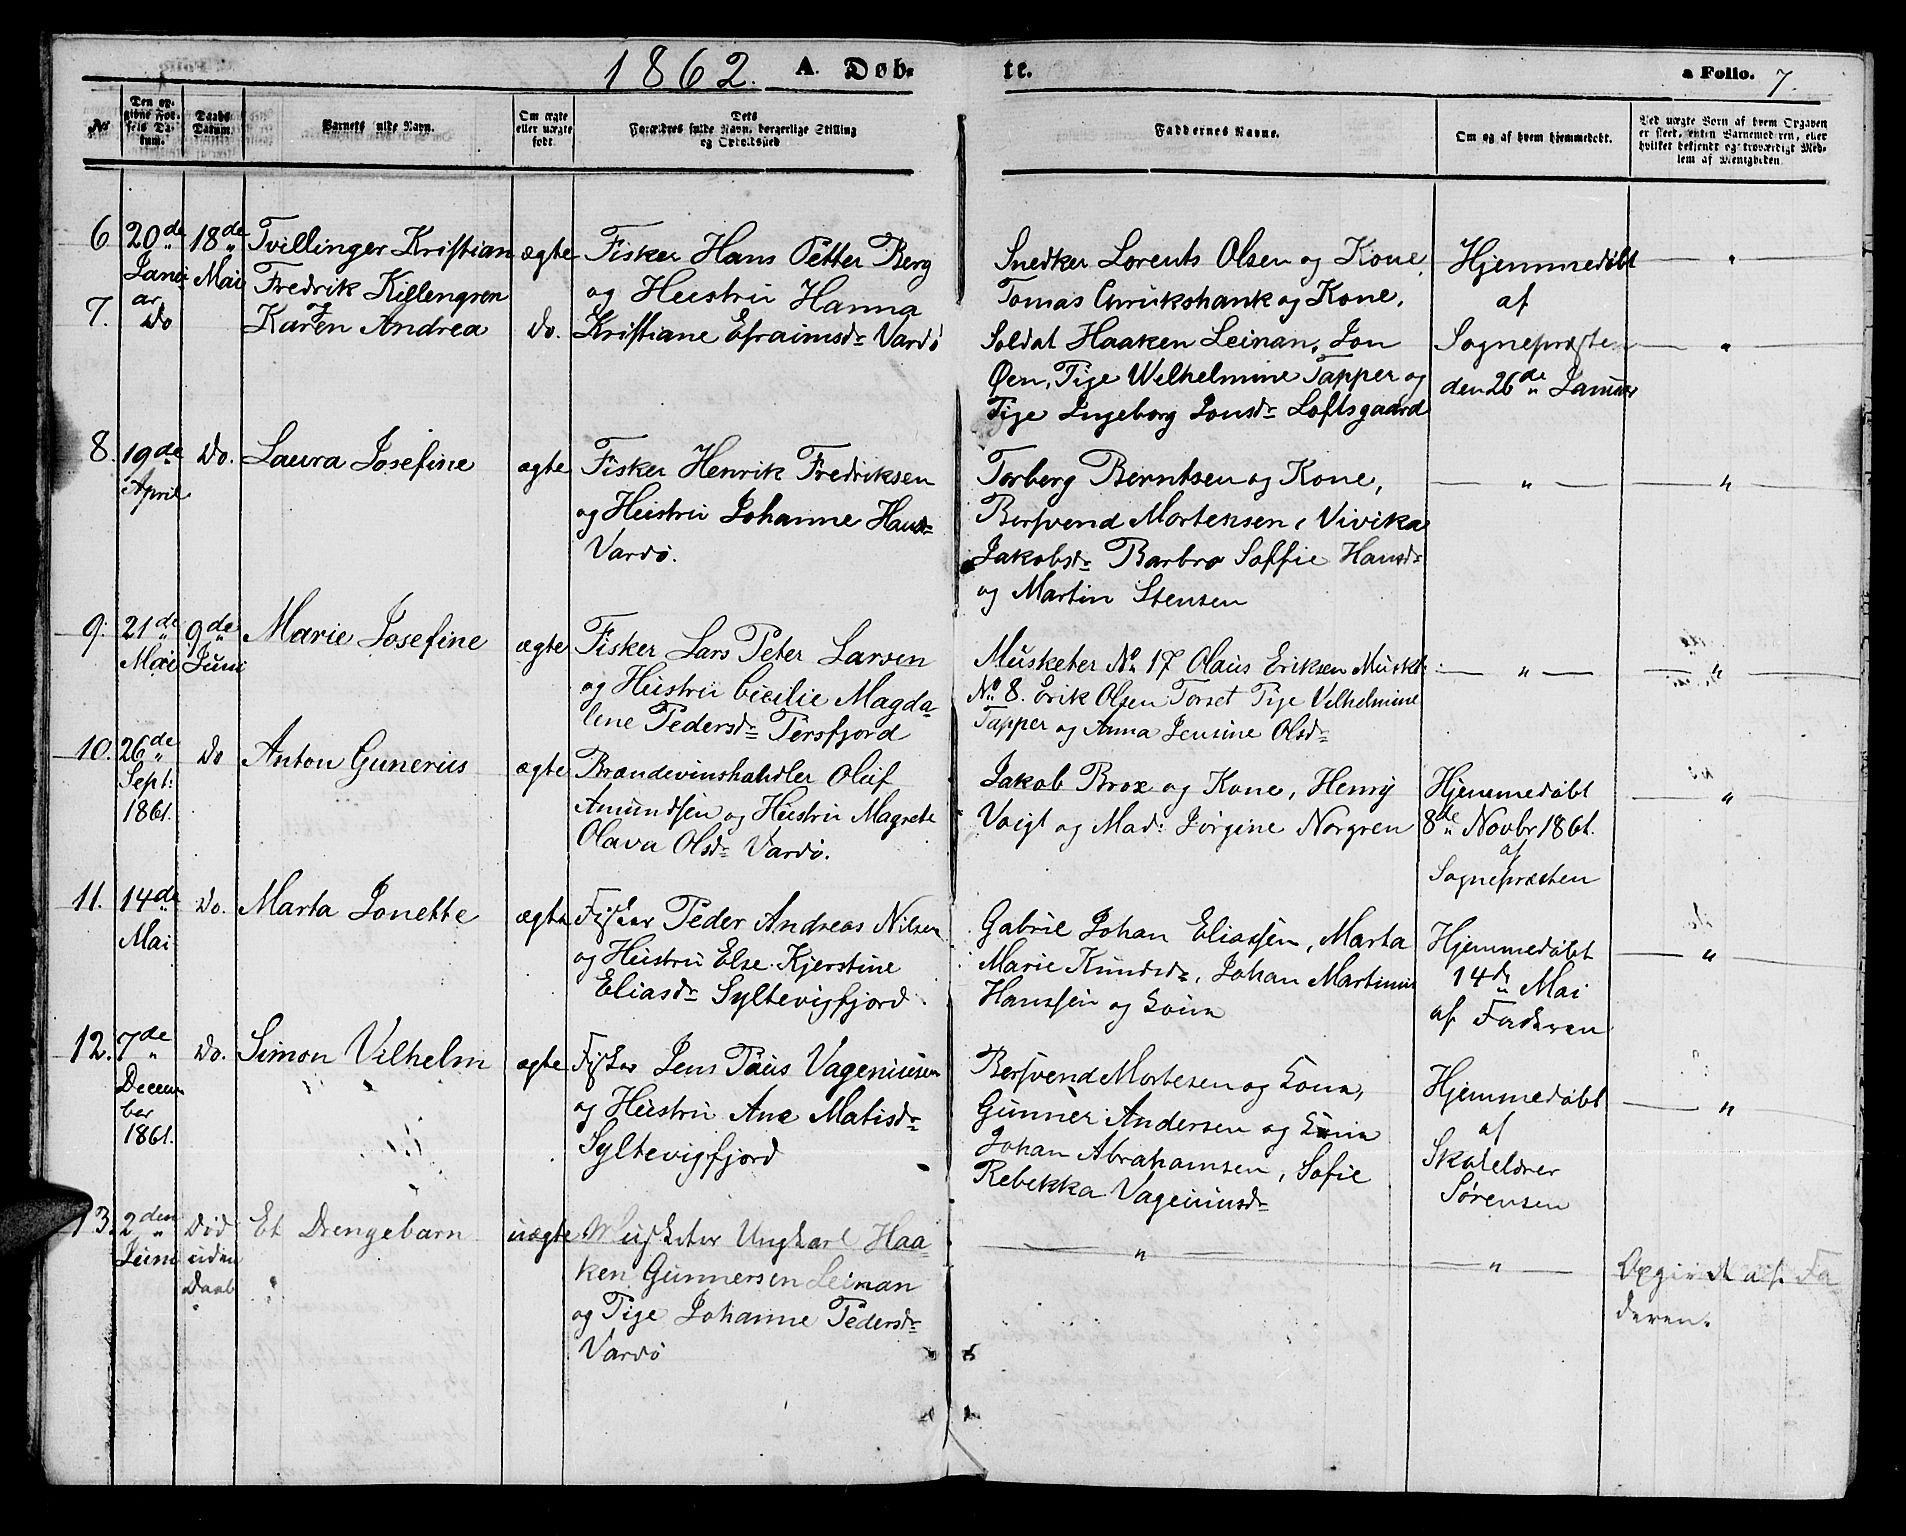 1862. A. Døb- te. a Folio. 7.
No
Den op-
givne Fød-
sels Da-
tum.
Daabs
Datum.
Barnets fulde Navn.
Om ægte
eller uægte
født.
Dets
Forældres fulde Navn, borgerlige Stilling
og Opholdssted
Faddernes Navne.
Om og af hvem hjemmedøbt.
Ved uægte Børn af hvem Opgaven
er skeet, enten Barnemoderen, eller
hvilket bekjendt og troværdigt Med-
lem af Menigheden.
6
20de
Janu
ar
18de
Mai
Tvillinger Kristian
Fredrik Killengren
ægte
Fisker Hans Petter Berg
og Hustru Hanna
Kristiane Efraimsdr Vardø
7.
Do
Karen Andrea
do.
Snedker Lorents Olsen og Kone,
Tomas Chrukshank og Kone,
Soldat Haaken Leinan, Jon
Øen, Pige Welhelmine Tapper og
Pige Ingeborg Jonsdr Loftsgaard
Hjemmedøbt
af
Sognepræsten
den 26de Januar
"
"
8.
19de
April
Do.
Laura Josefine
ægte
Fisker Henrik Fredriksen
og Hustru Johanne Hansdr
Vardø.
Torberg Berntsen og Kone,
Bersvend Mortensen, Vivika
Jakobsdr Barbro Soffie Hansdr
og Martin Stensen
"
"
9.
21de
Mai
9de
Juni
Marie Josefine
ægte
Fisker Lars Peter Larsen
og Hustru Cicilie Magda-
lene Pedersdr Persfjord
Musketer No 17 Olaus Eriksen Muskt:
No 8. Erik Olsen Torset Pige Vilhelmine
Tapper og Anna Jensine Olsdr
"
"
10.
26de
Sept:
1861.
Do
Anton Gunerius
ægte
Brændevinshandler Oluf
Amundsen og Hustru Magrete
Olava Olsdr Vardø.
Jakob Brox og Kone, Henry
Voigt og Mad: Jørgine Norgren
Hjemmedøbt
8de Novbr 1861.
af
Sognepræsten
"
11.
14de
Mai
Do.
Marta Jonette
ægte
Fisker Peder Andreas Nilsen
og Hustru Else Kjerstine
Eliasdr Syltevigfjord.
Gabriel Johan Eliassen, Marta
Marie Knudsdr, Johan Martinus
Hanssen og Kone
Hjemmedøbt
14de Mai
af Faderen
"
12.
7de
Decem-
ber
1861.
Do.
Simon Vilhelm
ægte
Fisker Jens Paus Vageniusen
og Hustru Ane Matisdr
Syltevigfjord
Bersvend Mortesen og Kone,
Gunner Andersen og Kone
Johan Abrahamsen, Sofie
Rebekka Vageniusdr
Hjemmedøbt
af
Skolelærer
Sørensen
"
13.
2den
Juni
Død
uden
Daab
Et Drengebarn
uægte
Musketer Ungkarl Haa-
ken Gunnersen Leinan
og Pige Johanne Pedersdr
Vardø
"
"
Opgivet af Fa
deren.